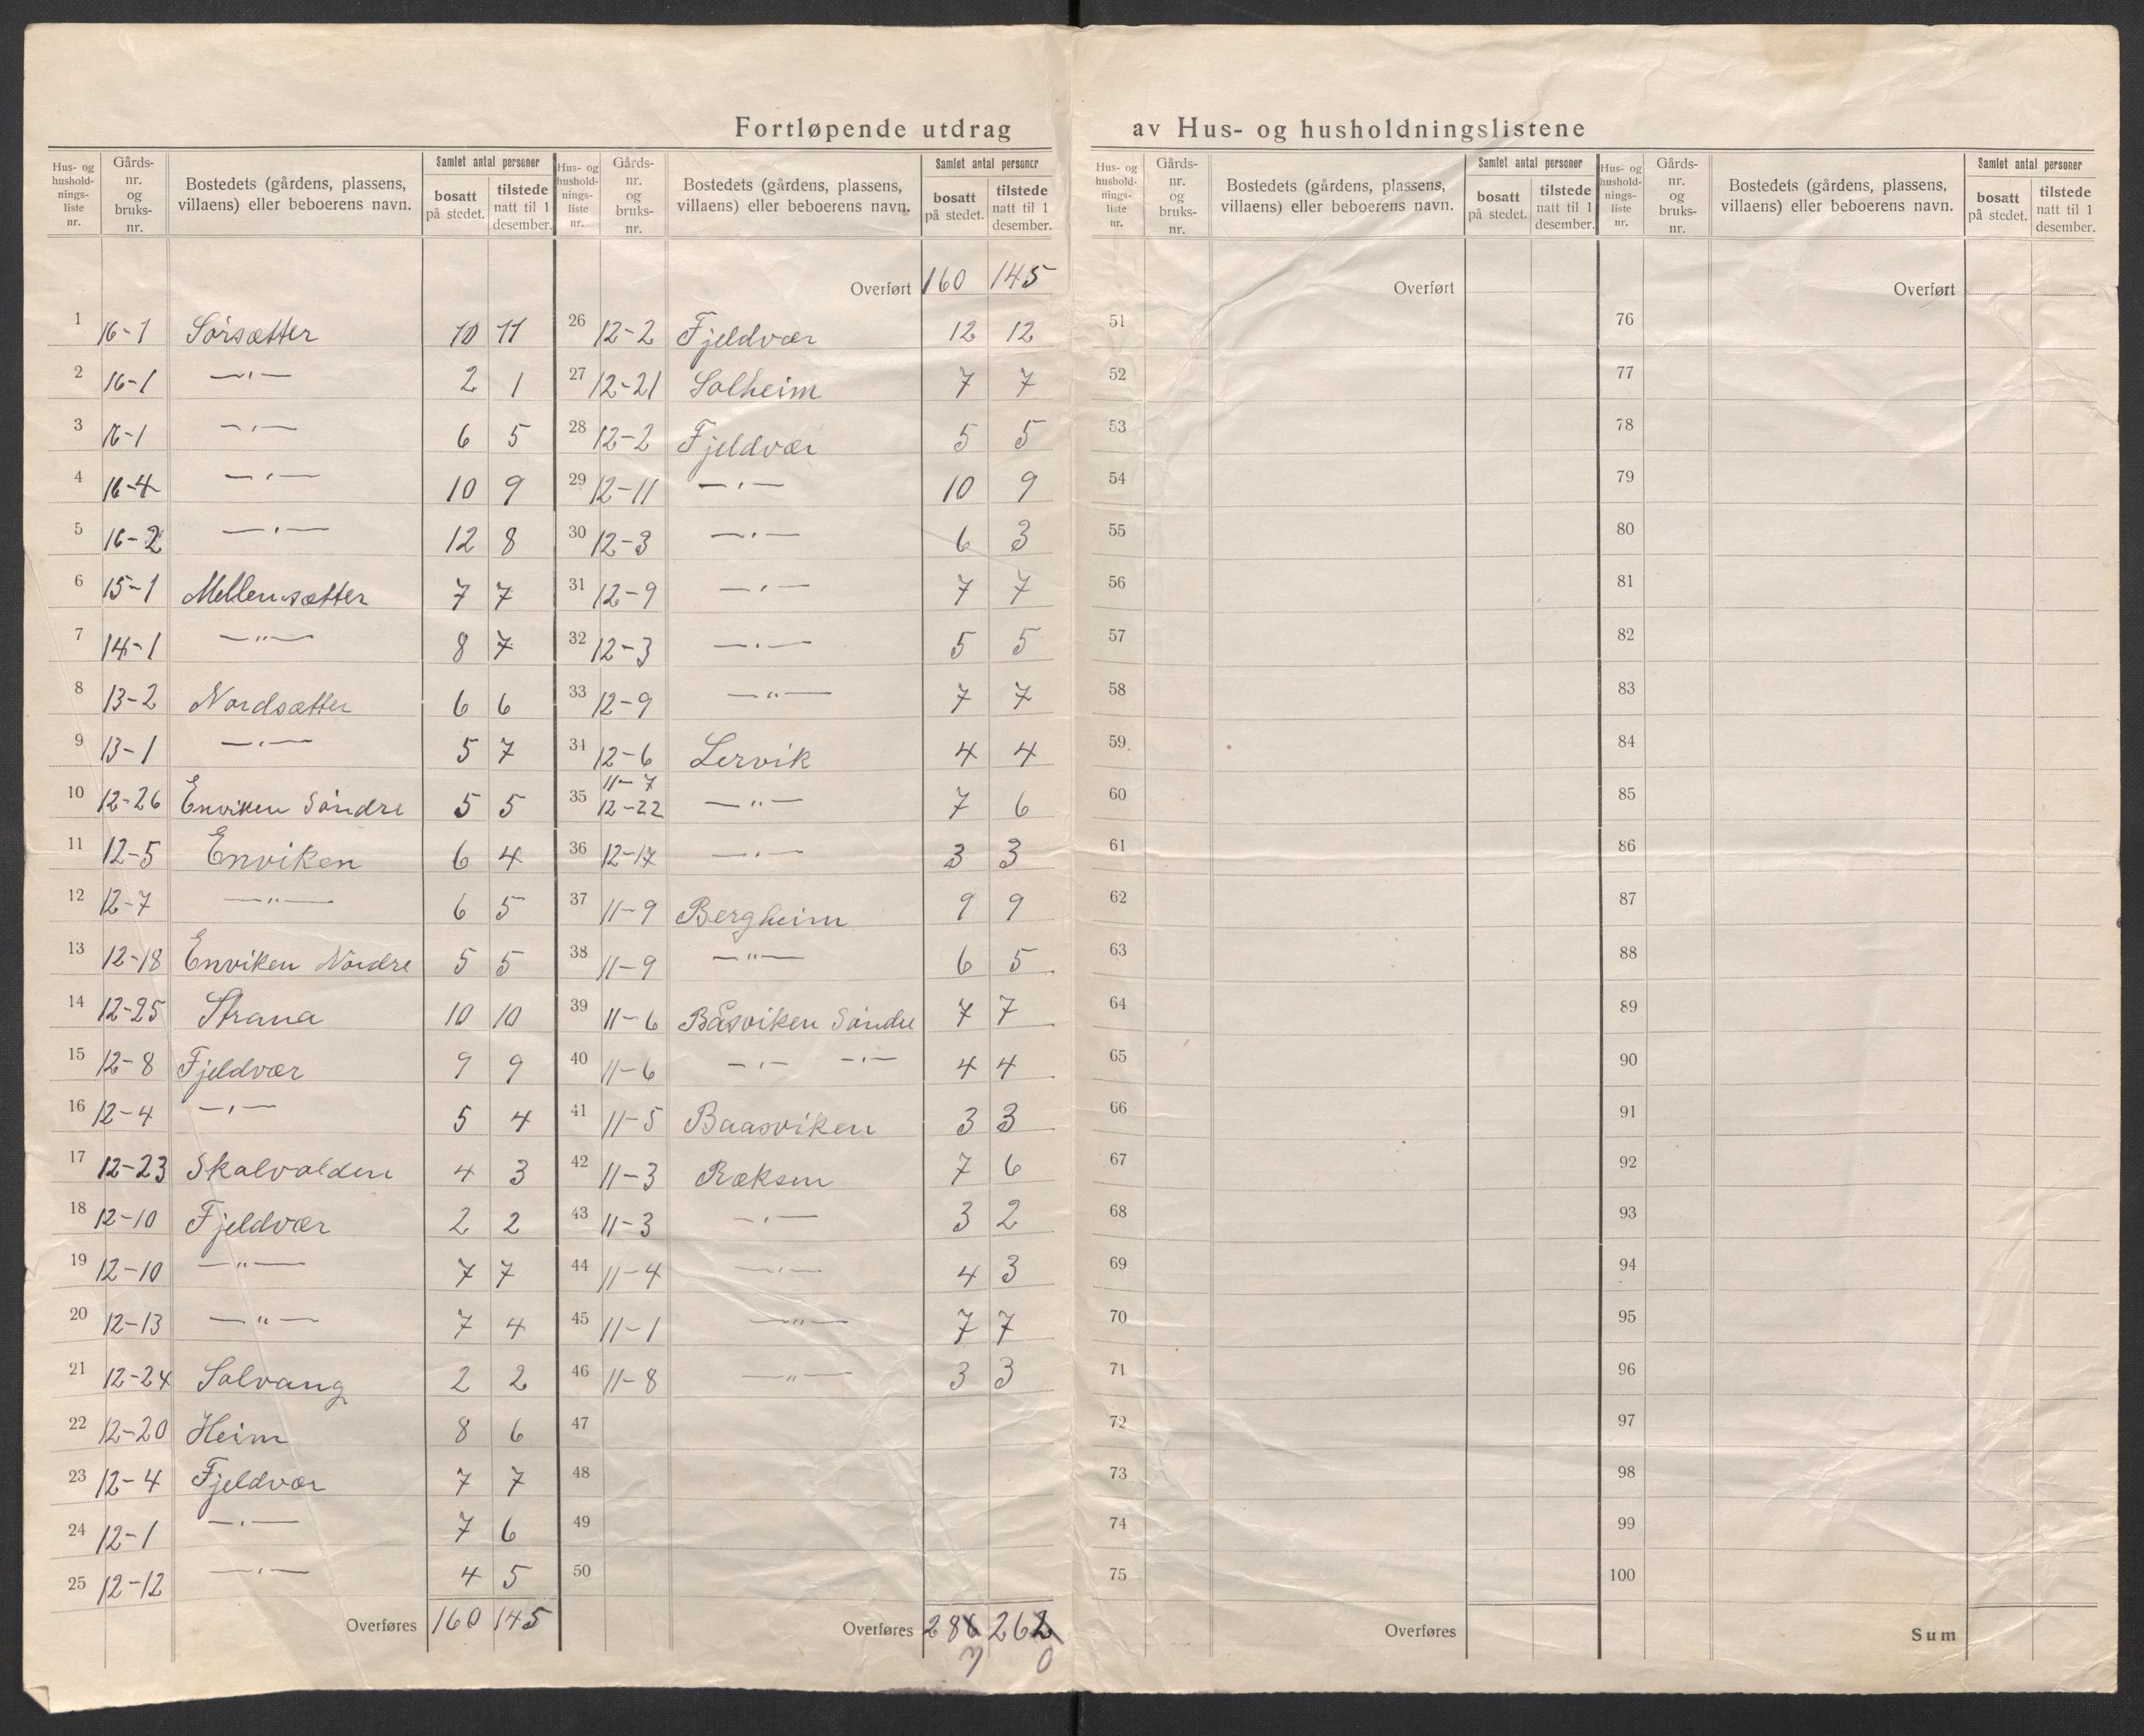 Fortløpende utdrag av Hus- og husholdningslistene
Hus- og hushold- nings- liste nr. | Gårds- nr. og bruks- nr. | Bostedets (gårdens, plassens, villaens) eller beboerens navn. | Samlet antal personer bosatt på stedet. | tilstede natt til 1 desember.
1 16-1 Sörsætter 10 11
2 16-1 —〃— 2 1
3 16-1 —〃— 6 5
4 16-4 —〃— 10 9
5 16-2 —〃— 12 8
6 15-1 Mellemsætter 7 7
7 14-1 —〃— 8 7
8 13-2 Nordsætter 6 6
9 13-1 —〃— 5 7
10 12-26 Enviken Söndre 5 5
11 12-5 Enviken 6 4
12 12-7 —〃— 6 5
13 12-18 Enviken Nördre 5 5
14 12-25 Strana 10 10
15 12-8 Fjeldvær 9 9
16 12-4 —〃— 5 4
17 12-23 Skalvolden 4 3
18 12-10 Fjeldvær 2 2
19 12-10 —〃— 7 7
20 12-13 —〃— 7 4
21 12-24 Solvang 2 2
22 12-20 Heim 8 6
23 12-4 Fjeldvær 7 7
24 12-1 —〃— 7 6
25 12-12 —〃— 4 5
Overføres 160 145
Hus- og hushold- nings- liste nr. | Gårds- nr. og bruks- nr. | Bostedets (gårdens, plassens, villaens) eller beboerens navn. | Samlet antal personer bosatt på stedet. | tilstede natt til 1 desember.
Overført 160 145
26 12-2 Fjeldvær 12 12
27 12-21 Solheim 7 7
28 12-2 Fjeldvær 5 5
29 12-11 —〃— 10 9
30 12-3 —〃— 6 3
31 12-9 —〃— 7 7
32 12-3 —〃— 5 5
33 12-9 —〃— 7 7
34 12-6 Lervik 4 4
35 11-7 12-22 —〃— 7 6
36 12-17 —〃— 3 3
37 11-9 Bergheim 9 9
38 11-9 —〃— 6 5
39 11-6 Båsviken Söndre 7 7
40 11-6 —〃— —〃— 4 4
41 11-5 Baasviken 3 3
42 11-3 Ræksen 7 6
43 11-3 —〃— 3 2
44 11-4 —〃— 4 3
45 11-1 —〃— 7 7
46 11-8 —〃— 3 3
47
48
49
50
Overføres 286 262
7 0
Hus- og hushold- nings- liste nr. | Gårds- nr. og bruks- nr. | Bostedets (gårdens, plassens, villaens) eller beboerens navn. | Samlet antal personer bosatt på stedet. | tilstede natt til 1 desember.
Overført
51
52
53
54
55
56
57
58
59
60
61
62
63
64
65
66
67
68
69
70
71
72
73
74
75
Overføres
Hus- og hushold- nings- liste nr. | Gårds- nr. og bruks- nr. | Bostedets (gårdens, plassens, villaens) eller beboerens navn. | Samlet antal personer bosatt på stedet. | tilstede natt til 1 desember.
Overført
76
77
78
79
80
81
82
83
84
85
86
87
88
89
90
91
92
93
94
95
96
97
98
99
100
Sum